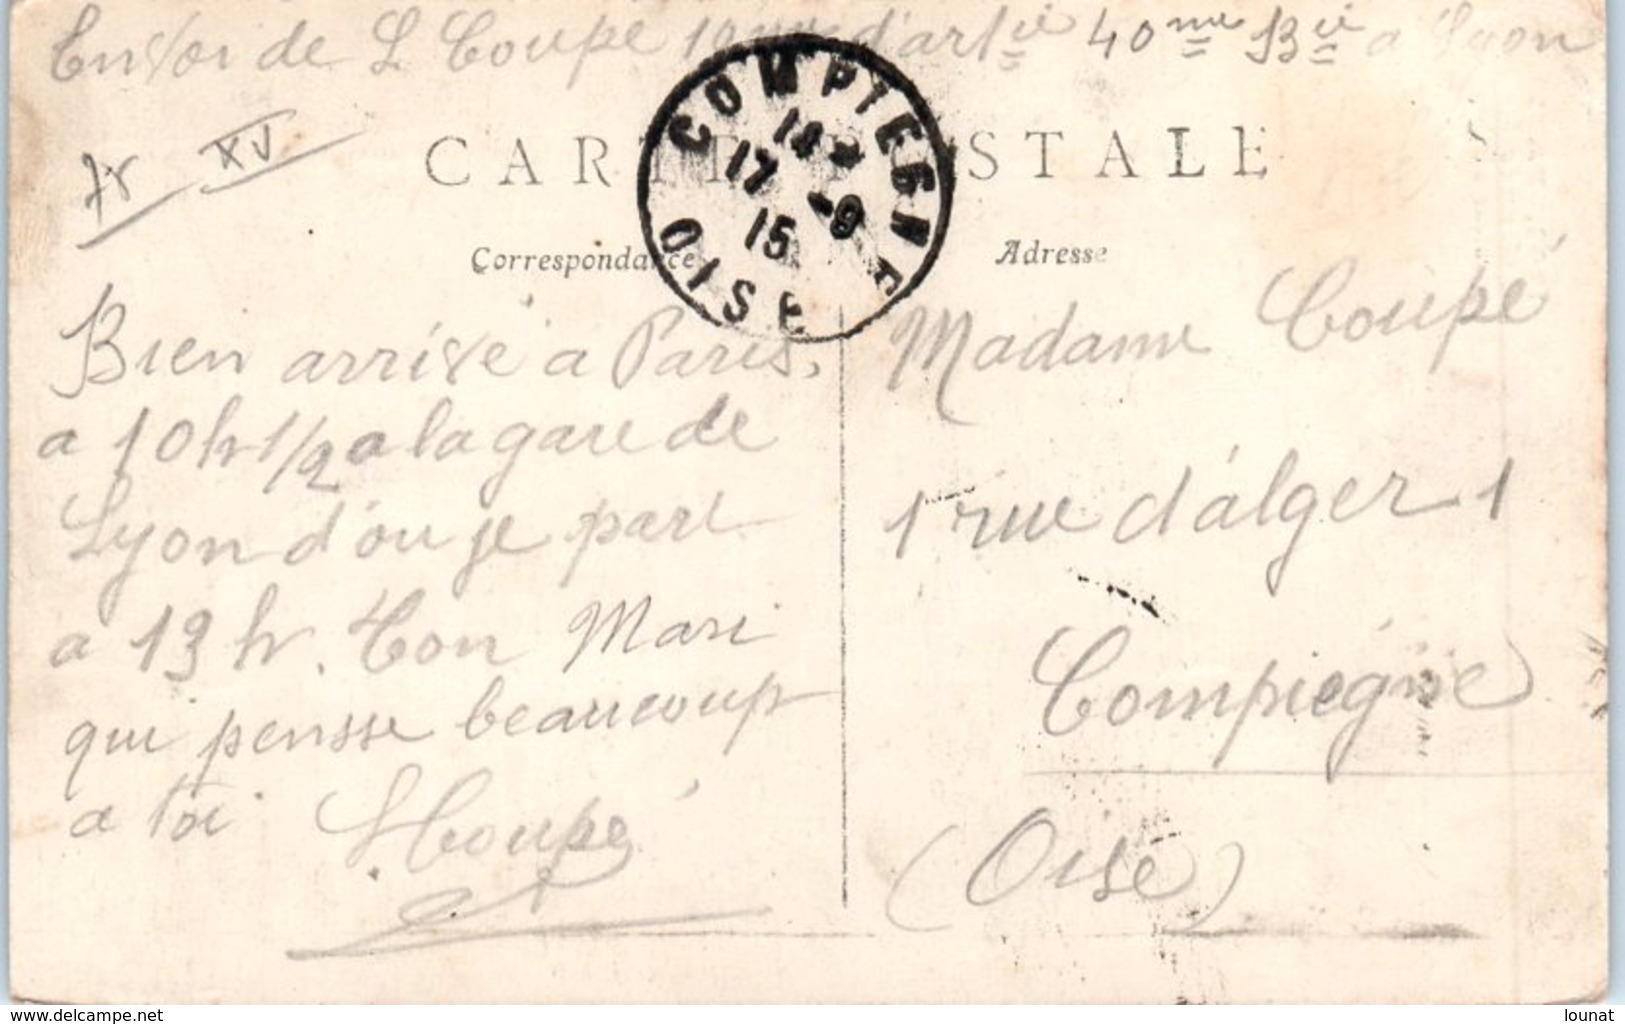 Envoi de L Coupé d'artie 40me Bie a Lyon
XV
CARTE POSTALE
COMPIEGNE
14
17 -9
15
OISE
Correspondance
Adresse
Bien arrivé a Paris,
a 10h 1/2 a la gare de
Lyon d'ou je part
a 13 h. Ton Mari
qui pensse beaucoup
a toi LCoupé
Madame Coupé
1 rue d'alger 1
Compiegne
(Oise)
www.delcampe.net
lounat